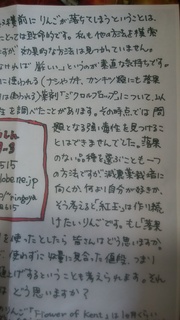 穫前に りんごが落ちてしまうということは、
とっては致命的です。私も他の方法を模索
すが 効果的な方法は見つかっていません。
なければ厳しい」というのが素直な気持ちです。
に使われる(ナシやカキ、カンキツ類にも落果
われるようです)薬剤「ジクロルプロップ」について、以
性を調べたことがあります。その時点では 問
題となる強い毒性を見つけるこ
とはできませんでした。落果
のない品種を選ぶことも一つ
の方法ですが、減農薬栽培に
向くか、何より自分が好きか、
そう考えると「紅玉」は作り続
けたいりんごです。もし「落果
を使ったとしたら 皆さんはどう思いますか。
使わずに 収量に見合った値段、つまり
値上げするということも考えられます。それ
はどう思いますか?
りんご「Flower of Kent」は
515
lobe.ne.jp
ringoya
515